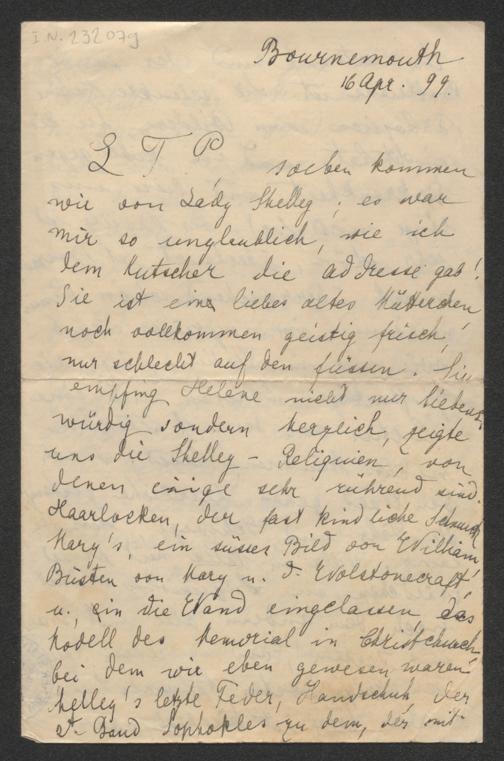 I.N. 232079
Bournemouth
16 Apr. 99.
L T P, soeben kommen
wir von Lady Shelley; es war
mir so unglaublich, wie ich
dem Kutscher die addresse gab!
Sie ist ein liebes altes Mütterchen,
noch vollkommen geistig frisch,
nur schlecht auf den füssen. Sie
empfing Helene nicht nur liebens-
würdig sondern herzlich, zeigte
uns die Shelley-Reliquien, von
denen einige sehr rührend sind.
Haarlocken, der fast kindliche Schmuck
Mary's, ein süsses Bild von William,
Büsten von Mary u. d. Wolstonecraft,
u. ein die Wand eingelassen, das
Modell des Memorial in Christchurch
bei dem wir eben gewesen waren.
Shelley's letzte Feder, Handschuh, der
2t. Band Sophokles zu dem, der mit-